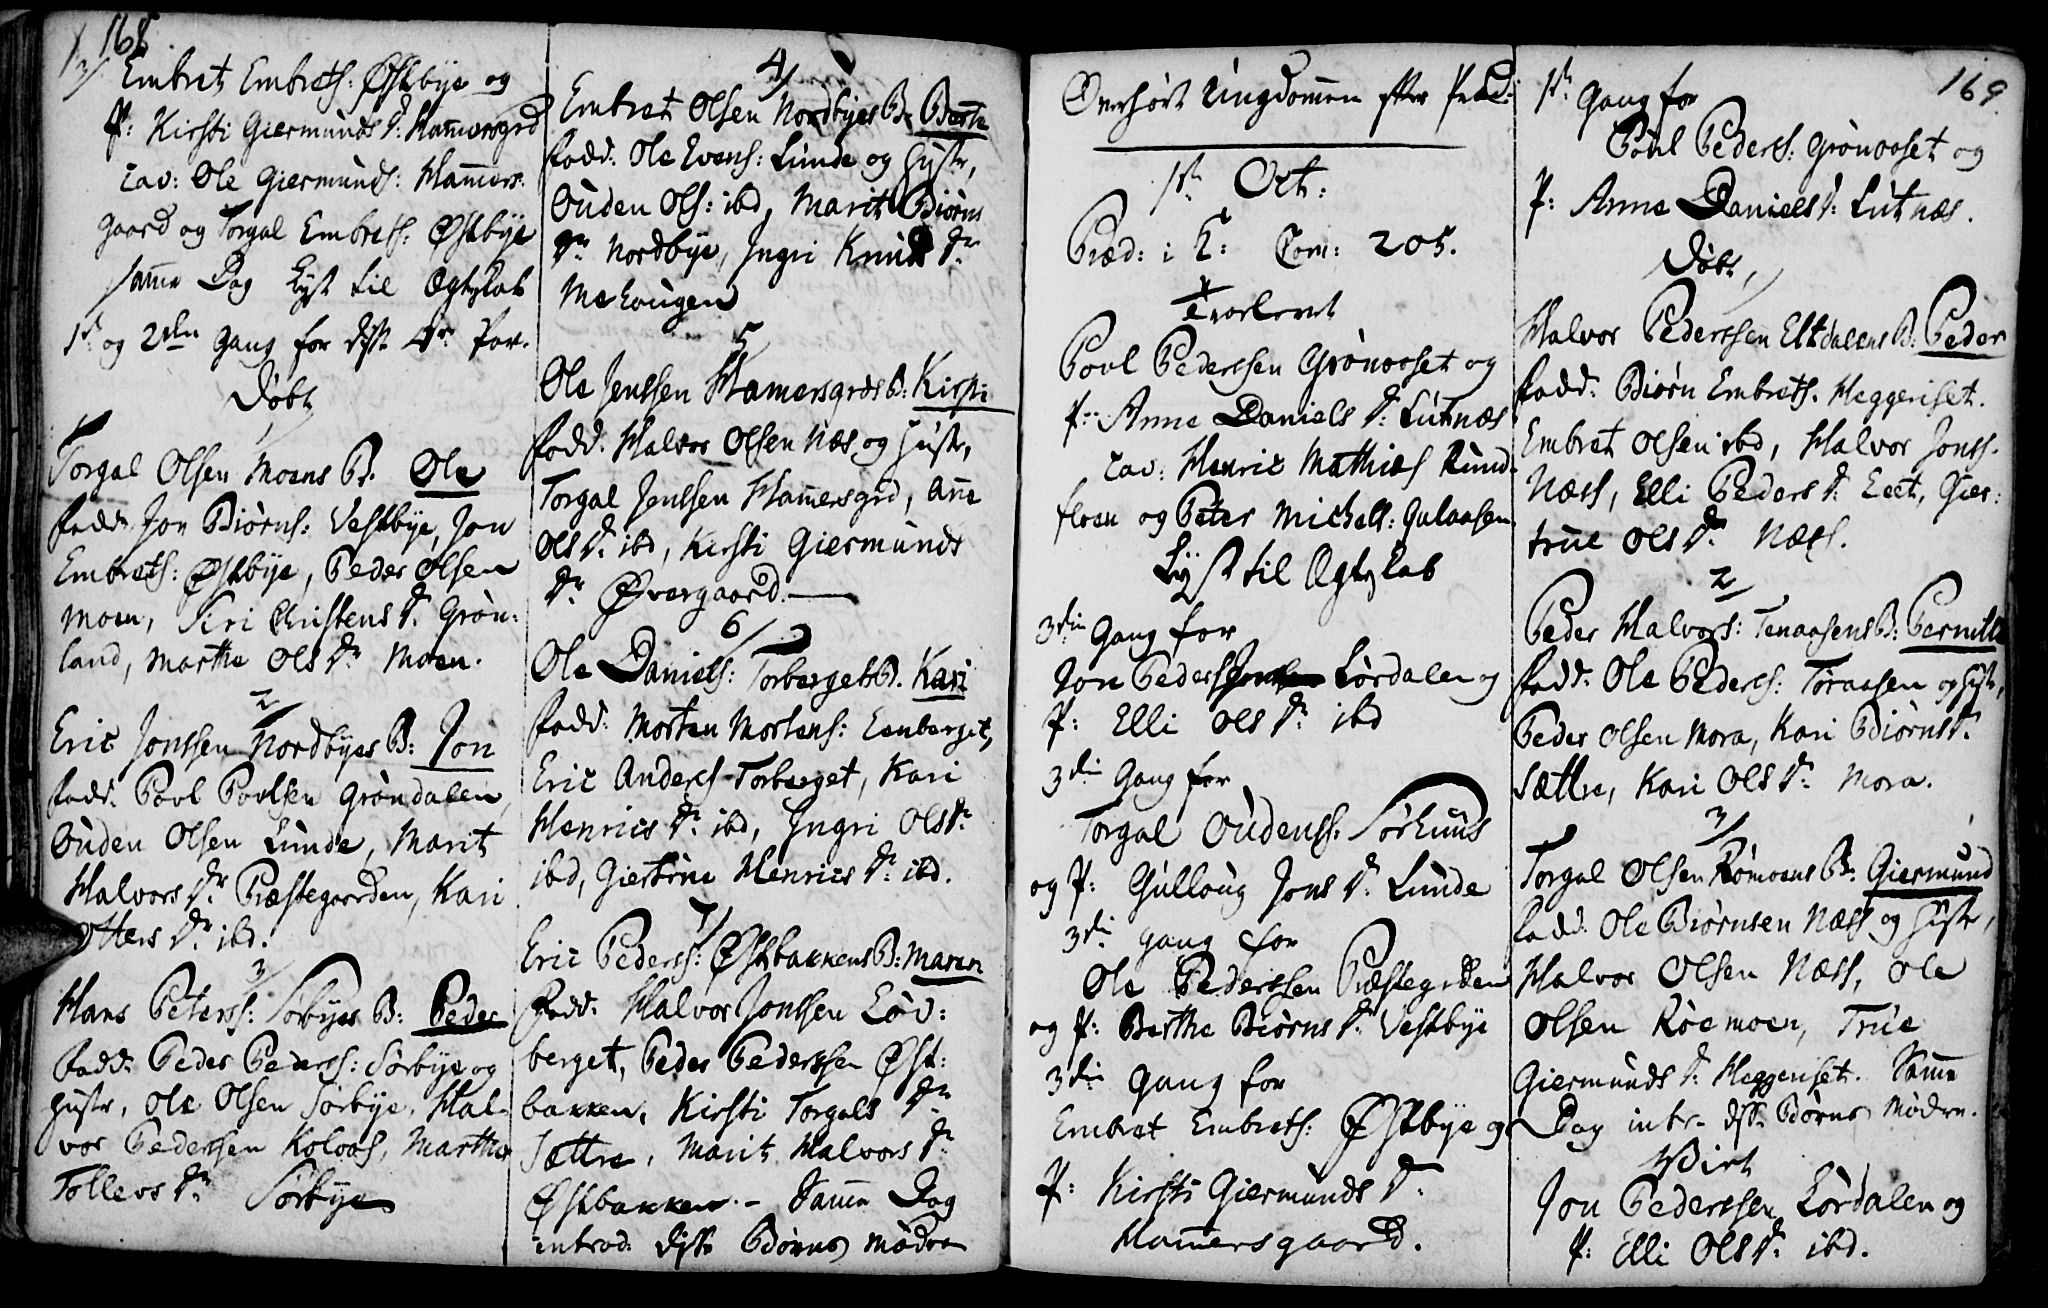 168.
3/ Embret Embrets: Østbye og
P: Kirsti Giermunds Dr: Ham̅ersgrd
cav: Ole Giermunds: Ham̅ers:
gaard og Torgal Embrets: Østbye
sam̅e Dag Lyst til Ægteskab
1st og 2den gang for disse 4re Par.
Døbt
1/
Torgal Olsen Moens B. Ole
fadd. Jon Biørns: Vestbye, Jon
Embrets: Østbye, Peder Olsen
Moen, Siri Christens Dr. Grøn:
land, Marthe Ols Dr. Moen.
2/
Eric Jonssen Nordbyes B: Jon
fadd. Povl Povlsen Grøndalen,
Ouden Olsen Lunde, Marit
Halvors Dr. Præstegaarden, Kari
Otters Dr. ibd.
3/
Hans Peterss: Sørbyes B: Peder
fadd. Peder Peders: Sørbye og
Hustr, Ole Olsen Sørbye, Hal-
vor Pederssen Koloas, Marthe
Tollevs Dr. Sørbye
4/
Embret Olsen Nordbyes B. Berte
fadd. Ole Evens: Lunde og Hustr,
Ouden Ols: ibd, Marit Biørns
Dr. Nordbye, Ingri Knuds Dr.
Mehougen
5/
Ole Jenssen Ham̅ersgrds B. Kirsti
fadd. Halvor Olsen Næs og Hustr,
Torgal Jenssen Ham̅ersgrd, An̅e
Ols Dr. ibd, Kirsti Giermunds
Dr. Øvergaard.
6/
Ole Daniels: Torbergets B. Kari
fadd: Morten Mortens: Eenberget,
Eric Anders: Torberget, Kari
Henrics Dr. ibd, Ingri Ols Dr.
ibd, Giertrue Henrics Dr. ibd.
7/
Eric Peders: Østbakkens B: Maren
fadd. Halvor Jonssen Løv:
berget, Peder Pederssen Øst:
bakken, Kirsti Torgals Dr.
Sættre, Marit Halvors Dr.
Østbakken. - Sam̅e Dag
introd: disse Børns Mødre
Overhørt Ungdom̅en efter Præd:
1st Oct:
Præd: i K: Com: 205.
Trorlovet
Povl Pederssen Grønoset og
P: Anne Daniels Dr: Lutnæs
cav: Henric Mathies Rund-
floen og Peter Michels: Galaasen
Lyst til Ægteskab
3die Gang for
Jon Peders Lørdalen og
P: Elli Ols Dr. ibd
3die Gang for
Torgal Oudenss: Sørhuus
og P: Gulloug Jons Dr. Lunde
3die gang for
Ole Pederssen Præstegrden
og P: Berthe Biørns Dr. Vestbye
3die gang for
Embret Embrets: Østbye og
P: Kirsti Giermunds Dr.
Ham̅ersgaard.
169
1st Gang for
Povl Peders: Grønoset og
P: Anne Daniels Dr: Lutnæs.
Døbt
1/
Halvor Pederssen Eltdalens B: Peder
fadd. Biørn Embrets. Heggeriset.
Embret Olsen ibd, Halvor Jonss.
Næss, Elli Peders Dr. Eeet, Gier:
true Ols Dr. Næss.
2/
Peder Halvors: Tenaasens B: Pernille
fadd. Ole Peders: Toraasen og Hustr,
Peder Olsen Mora, Kari Biørns Dr.
Sættre, Kari Ols Dr. Mora.
3/
Torgal Olsen Rømoens B: Giermund
fadd. Ole Biørnsen Næss og Hustr,
Halvor Olsen Næss, Ole
Olsen Røemoen, True
Giermunds Dr. Heggeriset. Sam̅e
Dag intr. disse Børns Mødre.
Viet
Jon Pederssen Lørdalen og
P: Elli Ols Dr. ibd.